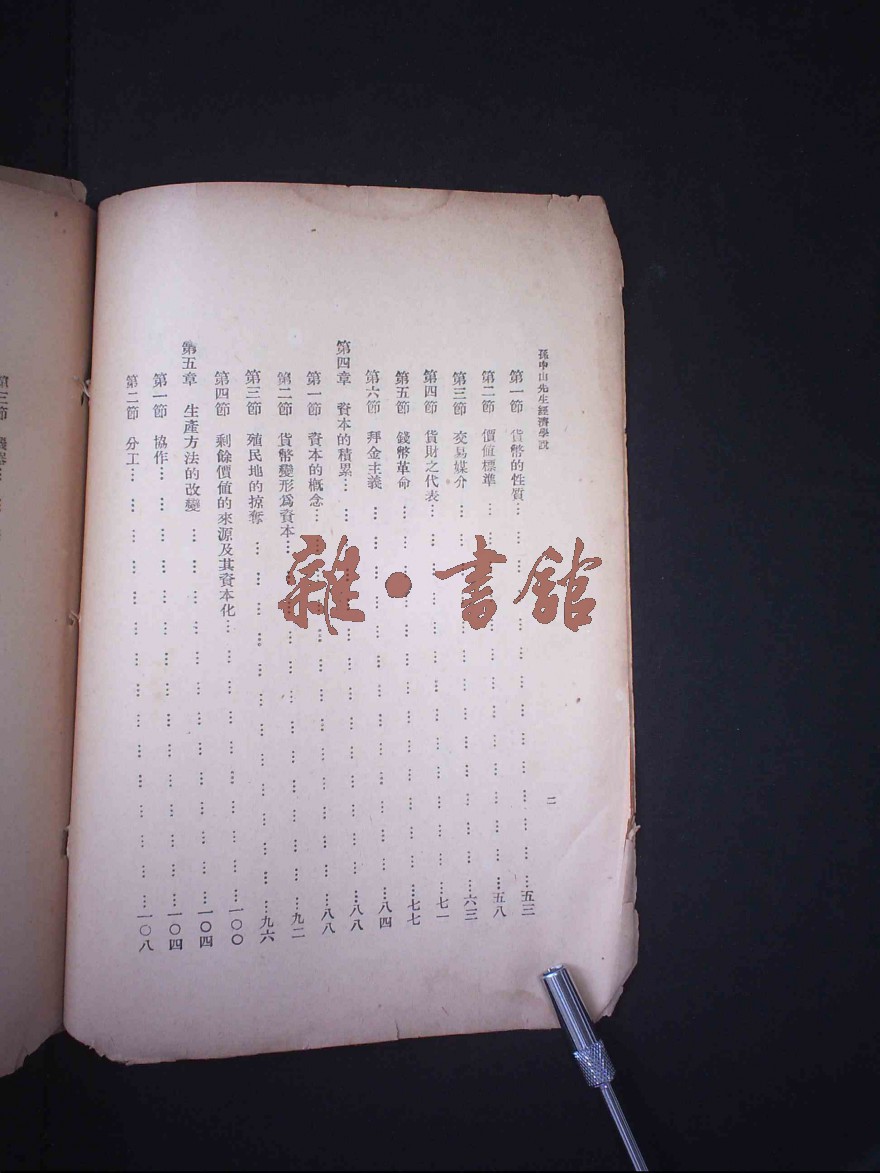 孫中山先生經濟學說
二
第一節 貨幣的性質……五三
第二節 價値標準……五八
第三節 交易媒介……六三
第四節 貨財之代表……七一
第五節 錢幣革命……七七
第六節 拜金主義……八四
第四章 資本的積累……八八
第一節 資本的槪念……八八
第二節 貨幣變形爲資本……九二
第三節 殖民地的掠奪……九六
第四節 剩餘價値的來源及其資本化……一〇〇
第五章 生產方法的改變……一〇四
第一節 協作……一〇四
第二節 分工……一〇八
第三節 機器……
雜·書館